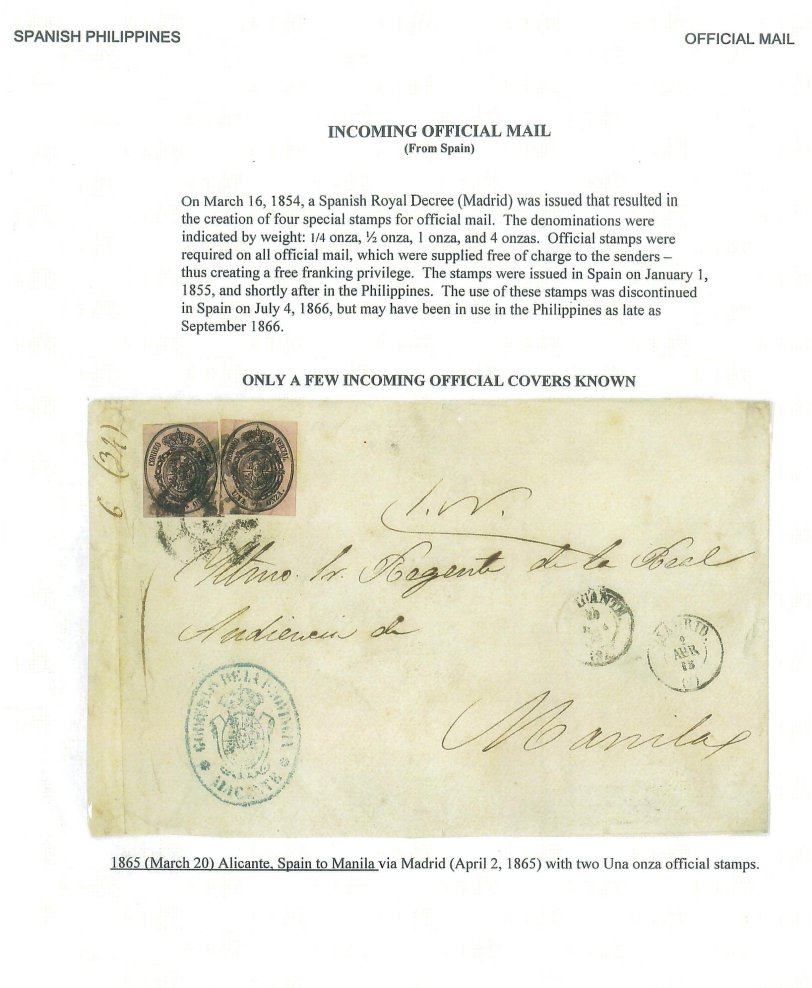 SPANISH PHILIPPINES
OFFICIAL MAIL
INCOMING OFFICIAL MAIL
(From Spain)
On March 16, 1854, a Spanish Royal Decree (Madrid) was issued that resulted in
the creation of four special stamps for official mail. The denominations were
indicated by weight: 1/4 onza, ½ onza, 1 onza, and 4 onzas. Official stamps were
required on all official mail, which were supplied free of charge to the senders –
thus creating a free franking privilege. The stamps were issued in Spain on January 1,
1855, and shortly after in the Philippines. The use of these stamps was discontinued
in Spain on July 4, 1866, but may have been in use in the Philippines as late as
September 1866.
ONLY A FEW INCOMING OFFICIAL COVERS KNOWN
6 (3½)
CORREO OFICIAL
CORREO OFICIAL
UNA ONZA.
S.N.
Yltmo. Sr. Regente de la Real
Audiencia de
Manila
ALICANTE
20
MADRID
2
ABR
65
GOBIERNO DE LA PROVINCIA
ALICANTE
1865 (March 20) Alicante, Spain to Manila via Madrid (April 2, 1865) with two Una onza official stamps.